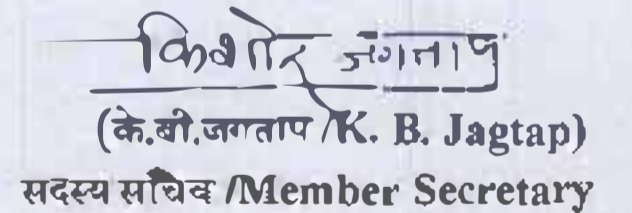 किशोर जगताप
(के.बी.जगताप /K. B. Jagtap)
सदस्य सचिव /Member Secretary